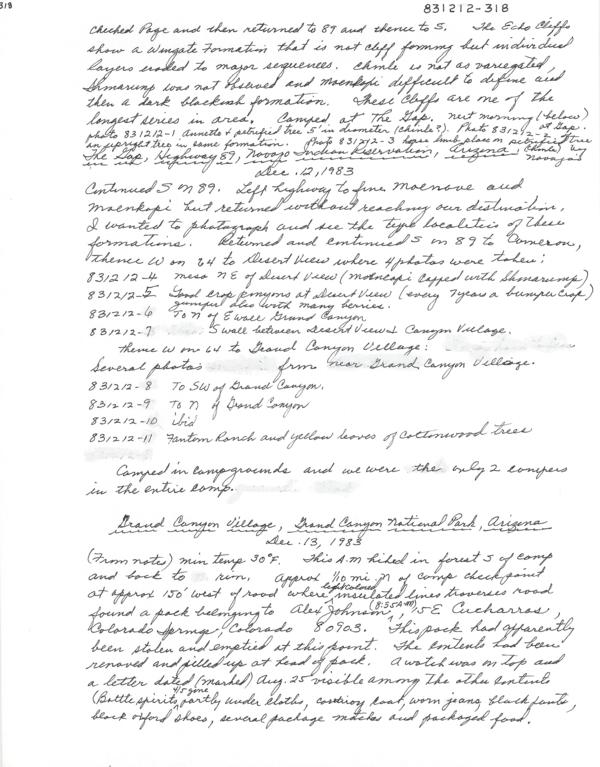 318
831212-318
checked Page and then returned to 89 and thence to S. The Echo Cliffs
show a Wingate Formation that is not cliff forming but individual
layers eroded to major sequences. Chinle is not as variegated,
Shinarump was not observed and moenkopi difficult to define and
then a dark blackish formation. These cliffs are one of the
longest series in area. Camped at The Gap. next morning (below)
photo 831212-1 Annette & petrified tree 5' in diameter (chinle?). Photo 831212-2 at Gap.
an upright tree in same formation. Photo 831212-3 limb place in petrified tree
The Gap, Highway 89, Navajo Indian Reservation, Arizona, (Chinle) by navajos
Dec. 12, 1983
Continued S on 89. Left highway to find Moenave and
Moenkopi but returned without reaching our destination.
I wanted to photograph and see the type localities of these
formations. Returned and continued S on 89 to Cameron,
thence W on 64 to Desert View where 4 photos were taken:
831212-4 mesa NE of Desert View (moencopi capped with Shinarump)
831212-5 Good crop pinyons at Desert View (every 7 years a bumper crop)
juniper also with many berries.
831212-6 To N of E wall Grand Canyon
831212-7 S wall between Desert View & Canyon Village.
thence W on 64 to Grand Canyon Village:
Several photos from near Grand Canyon Village.
831212-8 To SW of Grand Canyon.
831212-9 To N of Grand Canyon
831212-10 ibid
831212-11 Fantom Ranch and yellow leaves of Cottonwood trees
Camped in campgrounds and we were the only 2 campers
in the entire camp.
Grand Canyon Village, Grand Canyon National Park, Arizona
Dec. 13, 1983
(From notes) min temp 30°F. This A.M hiked in forest S of camp
and back to run. Approx 1/10 mi. N of camp check point
at approx 150' west of road where light colored insulated lines traverses road
found a pack belonging to Alex Johnson (8:35 AM), 15 E Cucharras,
Colorado Springs, Colorado 80903. This pack had apparently
been stolen and emptied at this point. The contents had been
removed and pilled up at head of pack. A watch was on top and
a letter dated (marked) Aug. 25 visible among the other contents
(Bottle spirits, 4/5 gone partly under cloths, corduroy coat, worn jeans, black pants,
black oxford shoes, several package matches and packaged food.